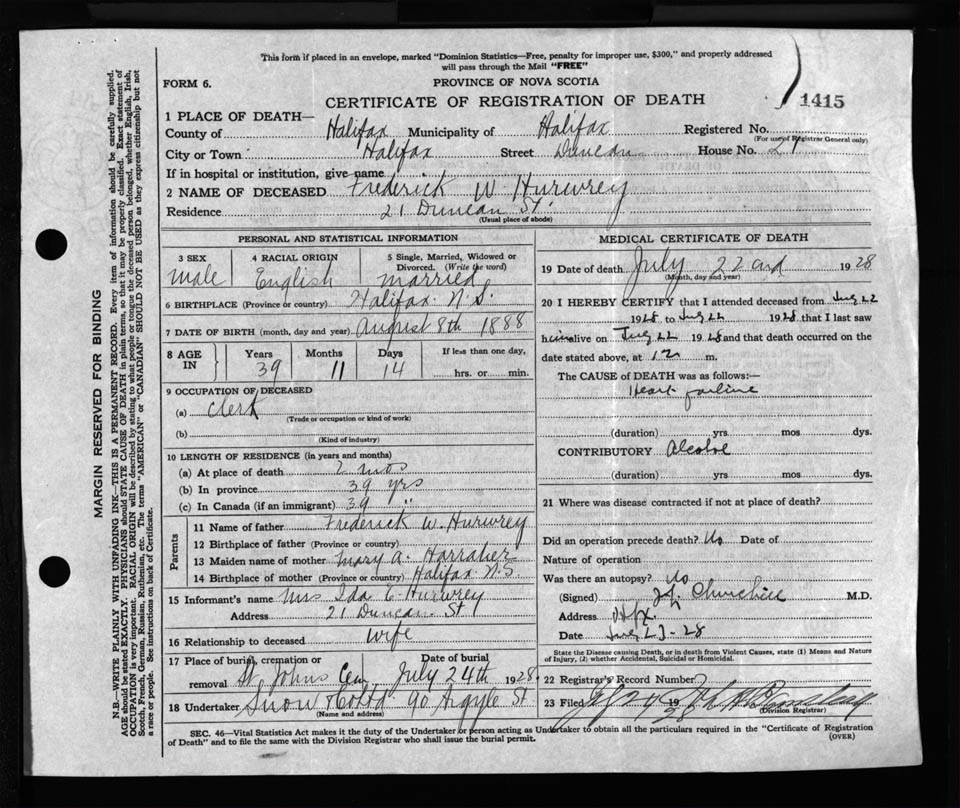 This form if placed in an envelope, marked "Dominion Statistics—Free, penalty for improper use, $300," and properly addressed
will pass through the Mail "FREE"
FORM 6.
PROVINCE OF NOVA SCOTIA
CERTIFICATE OF REGISTRATION OF DEATH
1415
1 PLACE OF DEATH—
County of Halifax Municipality of Halifax Registered No.
(For use of Registrar General only)
City or Town Halifax Street Duncan House No. 21
If in hospital or institution, give name
2 NAME OF DECEASED Frederick W Hurwrey
Residence 21 Duncan St.
(Usual place of abode)
PERSONAL AND STATISTICAL INFORMATION
3 SEX
Male
4 RACIAL ORIGIN
English
5 Single, Married, Widowed or
Divorced. (Write the word)
Married
6 BIRTHPLACE (Province or country) Halifax N.S.
7 DATE OF BIRTH (month, day and year) August 8th 1888
8 AGE IN
Years 39
Months 11
Days 14
If less than one day,
hrs. or min.
9 OCCUPATION OF DECEASED
(a) Clerk
(Trade or occupation or kind of work)
(b)
(Kind of industry)
10 LENGTH OF RESIDENCE (in years and months)
(a) At place of death 2 mos
(b) In province 39 yrs
(c) In Canada (if an immigrant) 39 "
Parents
11 Name of father Frederick W. Hurwrey
12 Birthplace of father (Province or country)
13 Maiden name of mother Mary A.
14 Birthplace of mother (Province or country) Halifax N.S.
15 Informant's name Mrs Ida E Hurwrey
Address 21 Duncan St
16 Relationship to deceased wife
17 Place of burial, cremation or
removal St Johns Cem
Date of burial
July 24th 1928
18 Undertaker Snow & Co Ltd 90 Argyle St
(Name and address)
MEDICAL CERTIFICATE OF DEATH
19 Date of death July 22nd 1928
(Month, day and year)
20 I HEREBY CERTIFY that I attended deceased from July 22
1928 to July 22 1928 that I last saw
him alive on July 22 1928 and that death occurred on the
date stated above, at 12 m.
The CAUSE of DEATH was as follows:—
Heart failure
(duration) yrs mos dys.
CONTRIBUTORY Alcohol
(duration) yrs mos dys.
21 Where was disease contracted if not at place of death?
Did an operation precede death? No Date of
Nature of operation
Was there an autopsy? No
(Signed) Churchill M.D.
Address Hfx.
Date July 23-28
State the Disease causing Death, or in death from Violent Causes, state (1) Means and Nature
of Injury, (2) whether Accidental, Suicidal or Homicidal.
22 Registrar's Record Number
23 Filed 24 19 28
(Division Registrar)
SEC. 46—Vital Statistics Act makes it the duty of the Undertaker or person acting as Undertaker to obtain all the particulars required in the "Certificate of Registration
of Death" and to file the same with the Division Registrar who shall issue the burial permit.
(OVER)
MARGIN RESERVED FOR BINDING
N.B.—WRITE PLAINLY WITH UNFADING INK—THIS IS A PERMANENT RECORD. Every item of information should be carefully supplied.
AGE should be stated EXACTLY. PHYSICIANS should STATE CAUSE OF DEATH in plain terms, so that it may be properly classified. Exact statement of
OCCUPATION is very important. RACIAL ORIGIN will be described by stating to what people or tongue the deceased person belonged, whether English, Irish,
Scotch, French, German, Russian, Ruthenian, etc. The terms "AMERICAN" or "CANADIAN" SHOULD NOT BE USED as they express citizenship but not
a race or people. See instructions on back of Certificate.